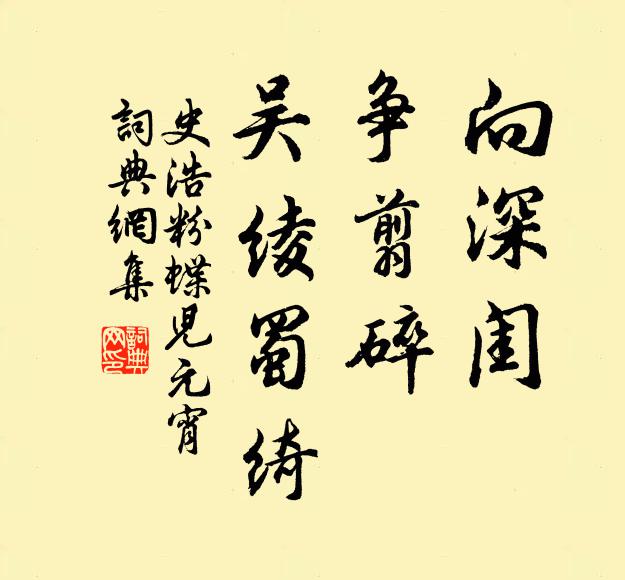 向深闺
争翦碎
吴绫蜀绮
史浩粉蝶児元宵
詞典網集
詞典
网印